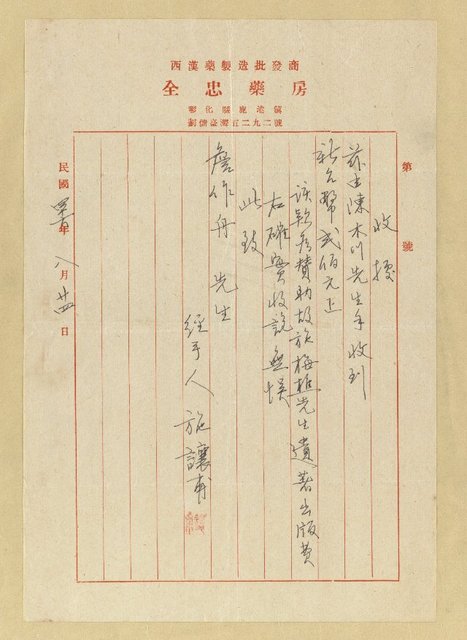 西漢藥製造批發商
全忠藥房
彰化縣鹿港鎮
劃儲臺灣五二九二號
第 號
收據
茲由陳木川先生手收到
新台幣弍佰元正
該款系贊助故施梅樵先生遺著出版費
右確實收訖無悞
此致
詹作舟 先生
經手人 施讓甫
民國 年八月廿四日